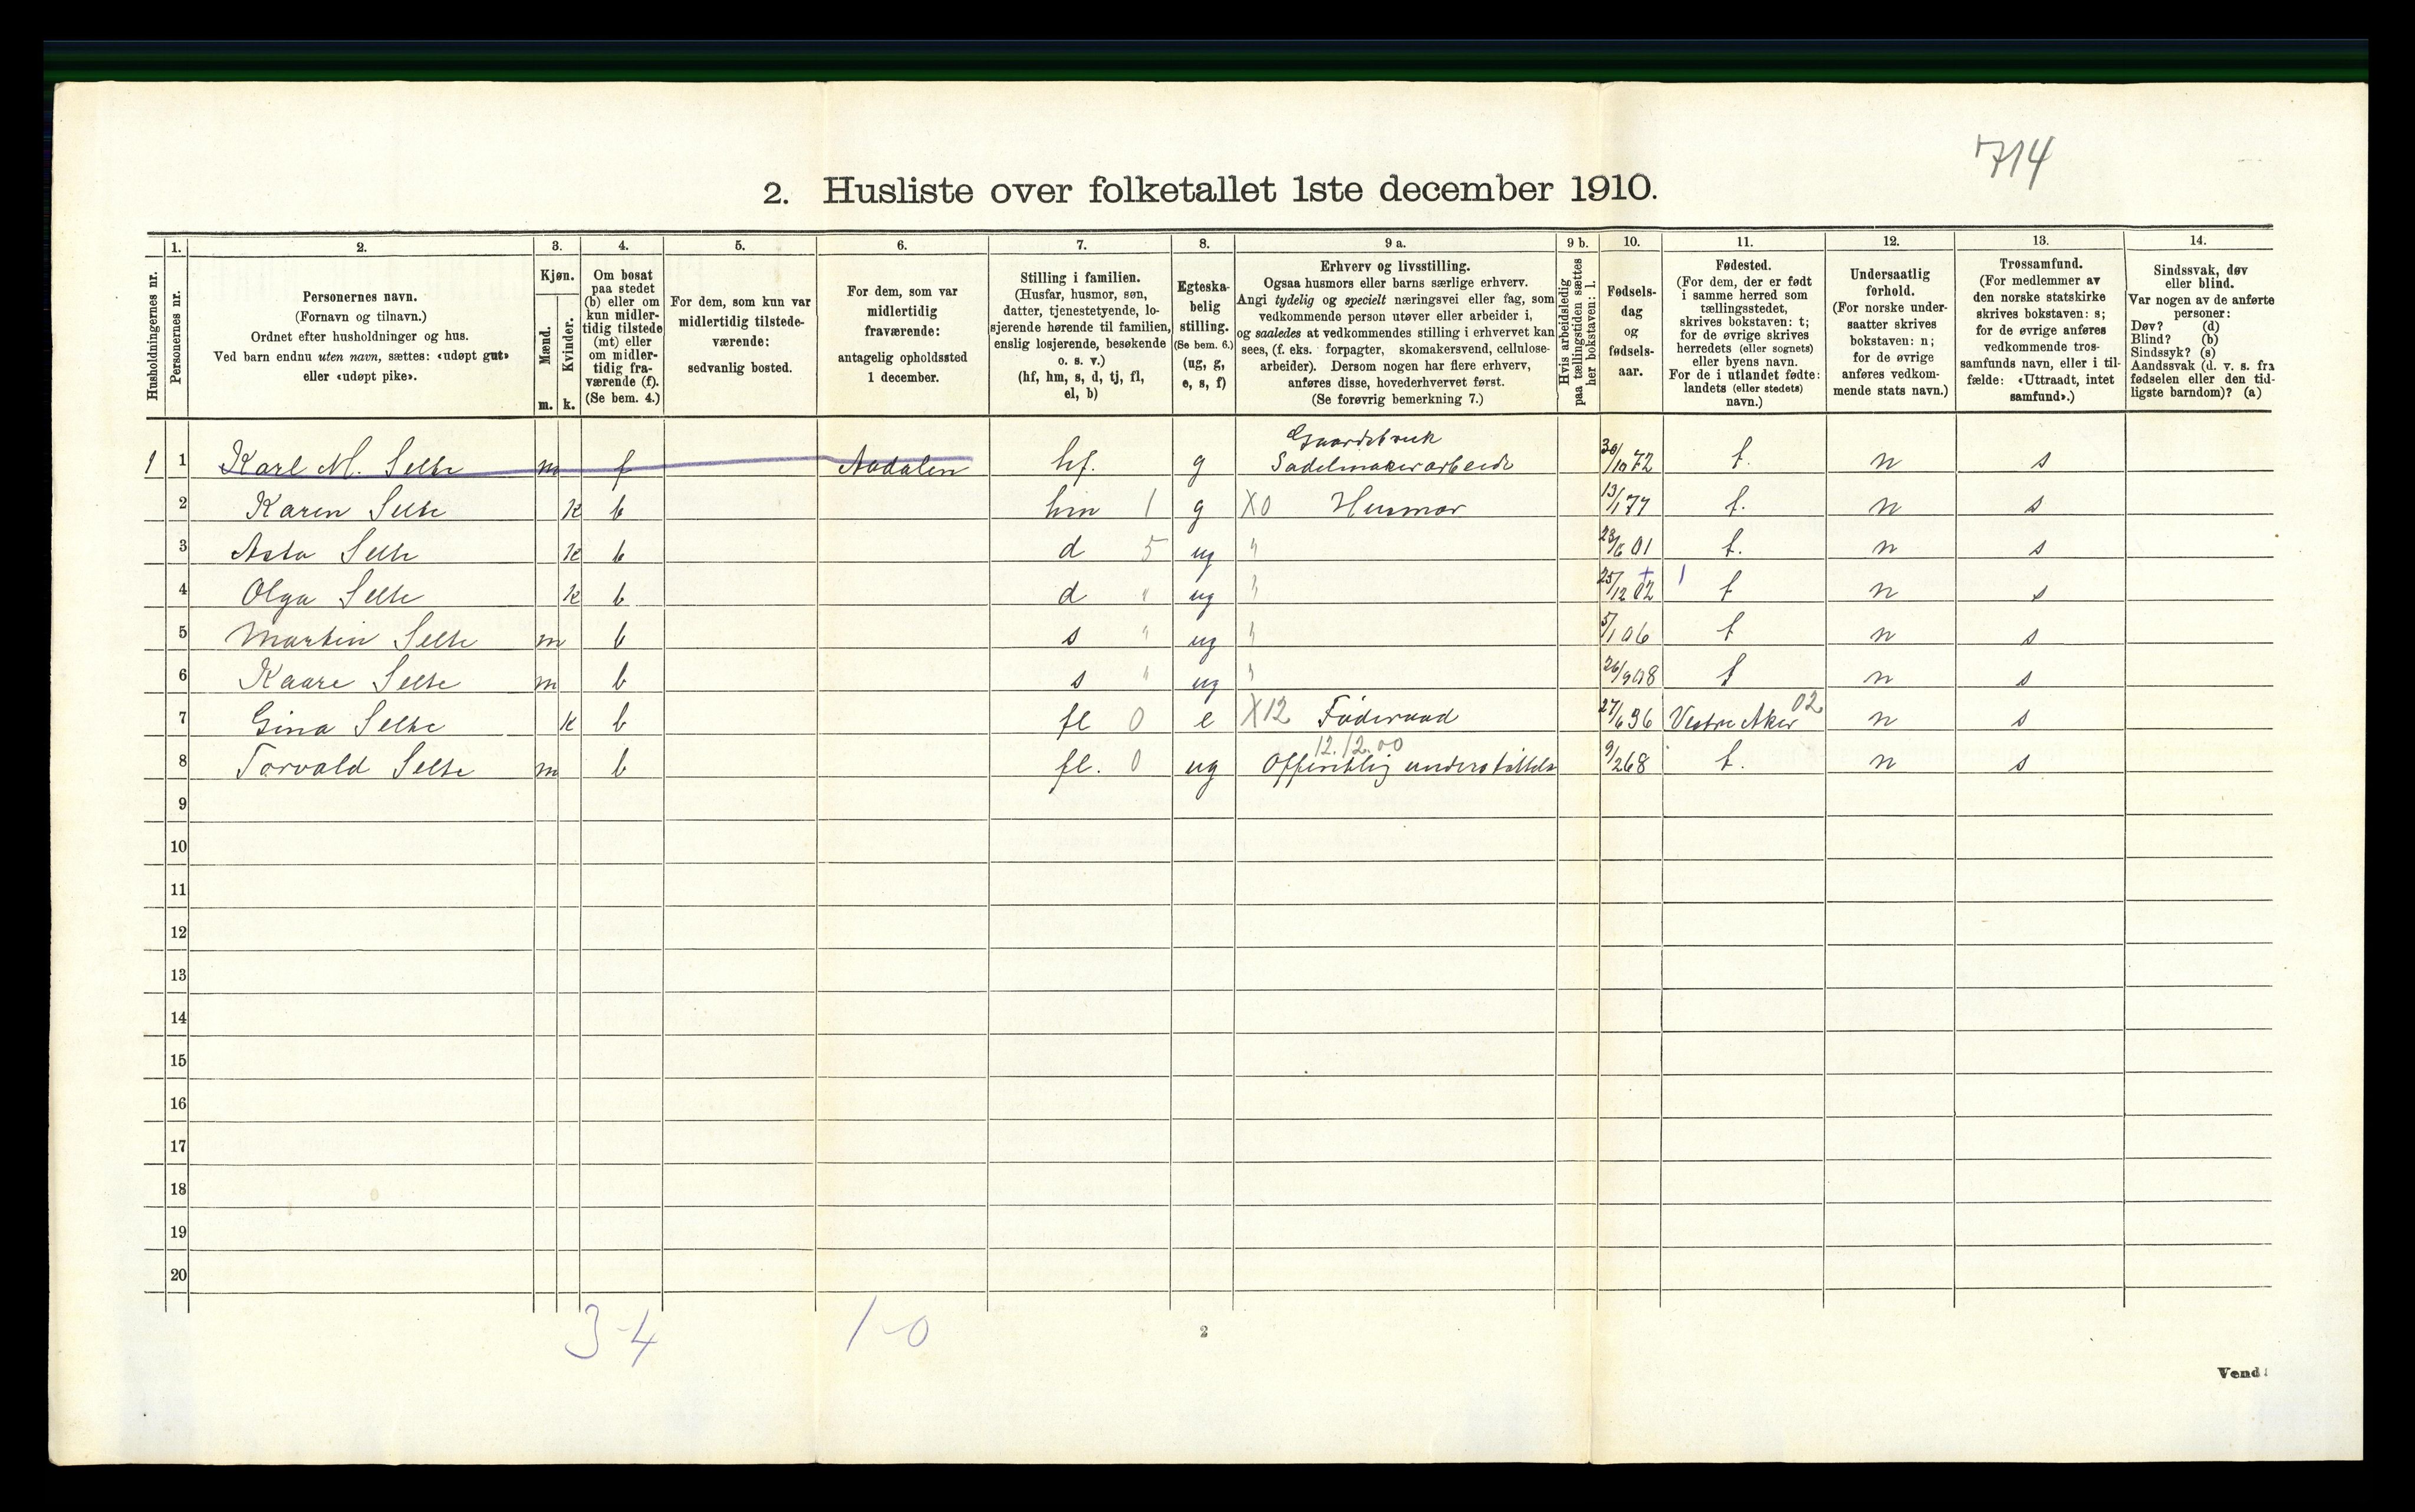 714
2. Husliste over folketallet 1ste december 1910.
Husholdningernes nr.
1.
Personernes nr.
2.
Personernes navn.
(Fornavn og tilnavn.)
Ordnet efter husholdninger og hus.
Ved barn endnu uten navn, sættes: «udøpt gut»
eller «udøpt pike».
3.
Kjøn.
Mænd.
m.
Kvinder.
k.
4.
Om bosat
paa stedet
(b) eller om
kun midler-
tidig tilstede
(mt) eller
om midler-
tidig fra-
værende (f).
(Se bem. 4.)
5.
For dem, som kun var
midlertidig tilstede-
værende:
sedvanlig bosted.
6.
For dem, som var
midlertidig
fraværende:
antagelig opholdssted
1 december.
7.
Stilling i familien.
(Husfar, husmor, søn,
datter, tjenestetyende, lo-
sjerende hørende til familien,
enslig losjerende, besøkende
o. s. v.)
(hf, hm, s, d, tj, fl,
el, b)
8.
Egteska-
belig
stilling.
(Se bem. 6.)
(ug, g,
e, s, f)
9 a.
Erhverv og livsstilling.
Ogsaa husmors eller barns særlige erhverv.
Angi tydelig og specielt næringsvei eller fag, som
vedkommende person utøver eller arbeider i,
og saaledes at vedkommendes stilling i erhvervet kan
sees, (f. eks. forpagter, skomakersvend, cellulose-
arbeider). Dersom nogen har flere erhverv,
anføres disse, hovederhvervet først.
(Se forøvrig bemerkning 7.)
9 b.
Hvis arbeidsledig
paa tællingstiden sættes
her bokstaven: l.
10.
Fødsels-
dag
og
fødsels-
aar.
11.
Fødested.
(For dem, der er født
i samme herred som
tællingsstedet,
skrives bokstaven: t;
for de øvrige skrives
herredets (eller sognets)
eller byens navn.
For de i utlandet fødte:
landets (eller stedets)
navn.)
12.
Undersaatlig
forhold.
(For norske under-
saatter skrives
bokstaven: n;
for de øvrige
anføres vedkom-
mende stats navn.)
13.
Trossamfund.
(For medlemmer av
den norske statskirke
skrives bokstaven: s;
for de øvrige anføres
vedkommende tros-
samfunds navn, eller i til-
fælde: «Uttraadt, intet
samfund».)
14.
Sindssvak, døv
eller blind.
Var nogen av de anførte
personer:
Døv? (d)
Blind? (b)
Sindssyk? (s)
Aandssvak (d. v. s. fra
fødselen eller den tid-
ligste barndom)? (a)
Gaardsbruk
1 1 Karl M. Selte m f Aadalen hf. g Sadelmakerarbeide 30/10 72 t. n s
2 Karen Selte k b hm 1 g X0 Husmor 13/1 77 t. n s
3 Asta Selte k b d 5 ug " 23/6 01 t. n s
4 Olga Selte k b d " ug " 25/12 02 t n s
5 Martin Selte m b s " ug " 5/1 06 t n s
6 Kaare Selte m b s " ug " 26/9 08 t n s
7 Gina Selte k b fl 0 e X12 Föderaad 27/6 36 Vestre Aker 02 n s
12.12.00
8 Torvald Selte m b fl. 0 ug Offentlig understöttels 9/2 68 t. n s
9
10
11
12
13
14
15
16
17
18
19
20
3-4 1-0
2
Vend!